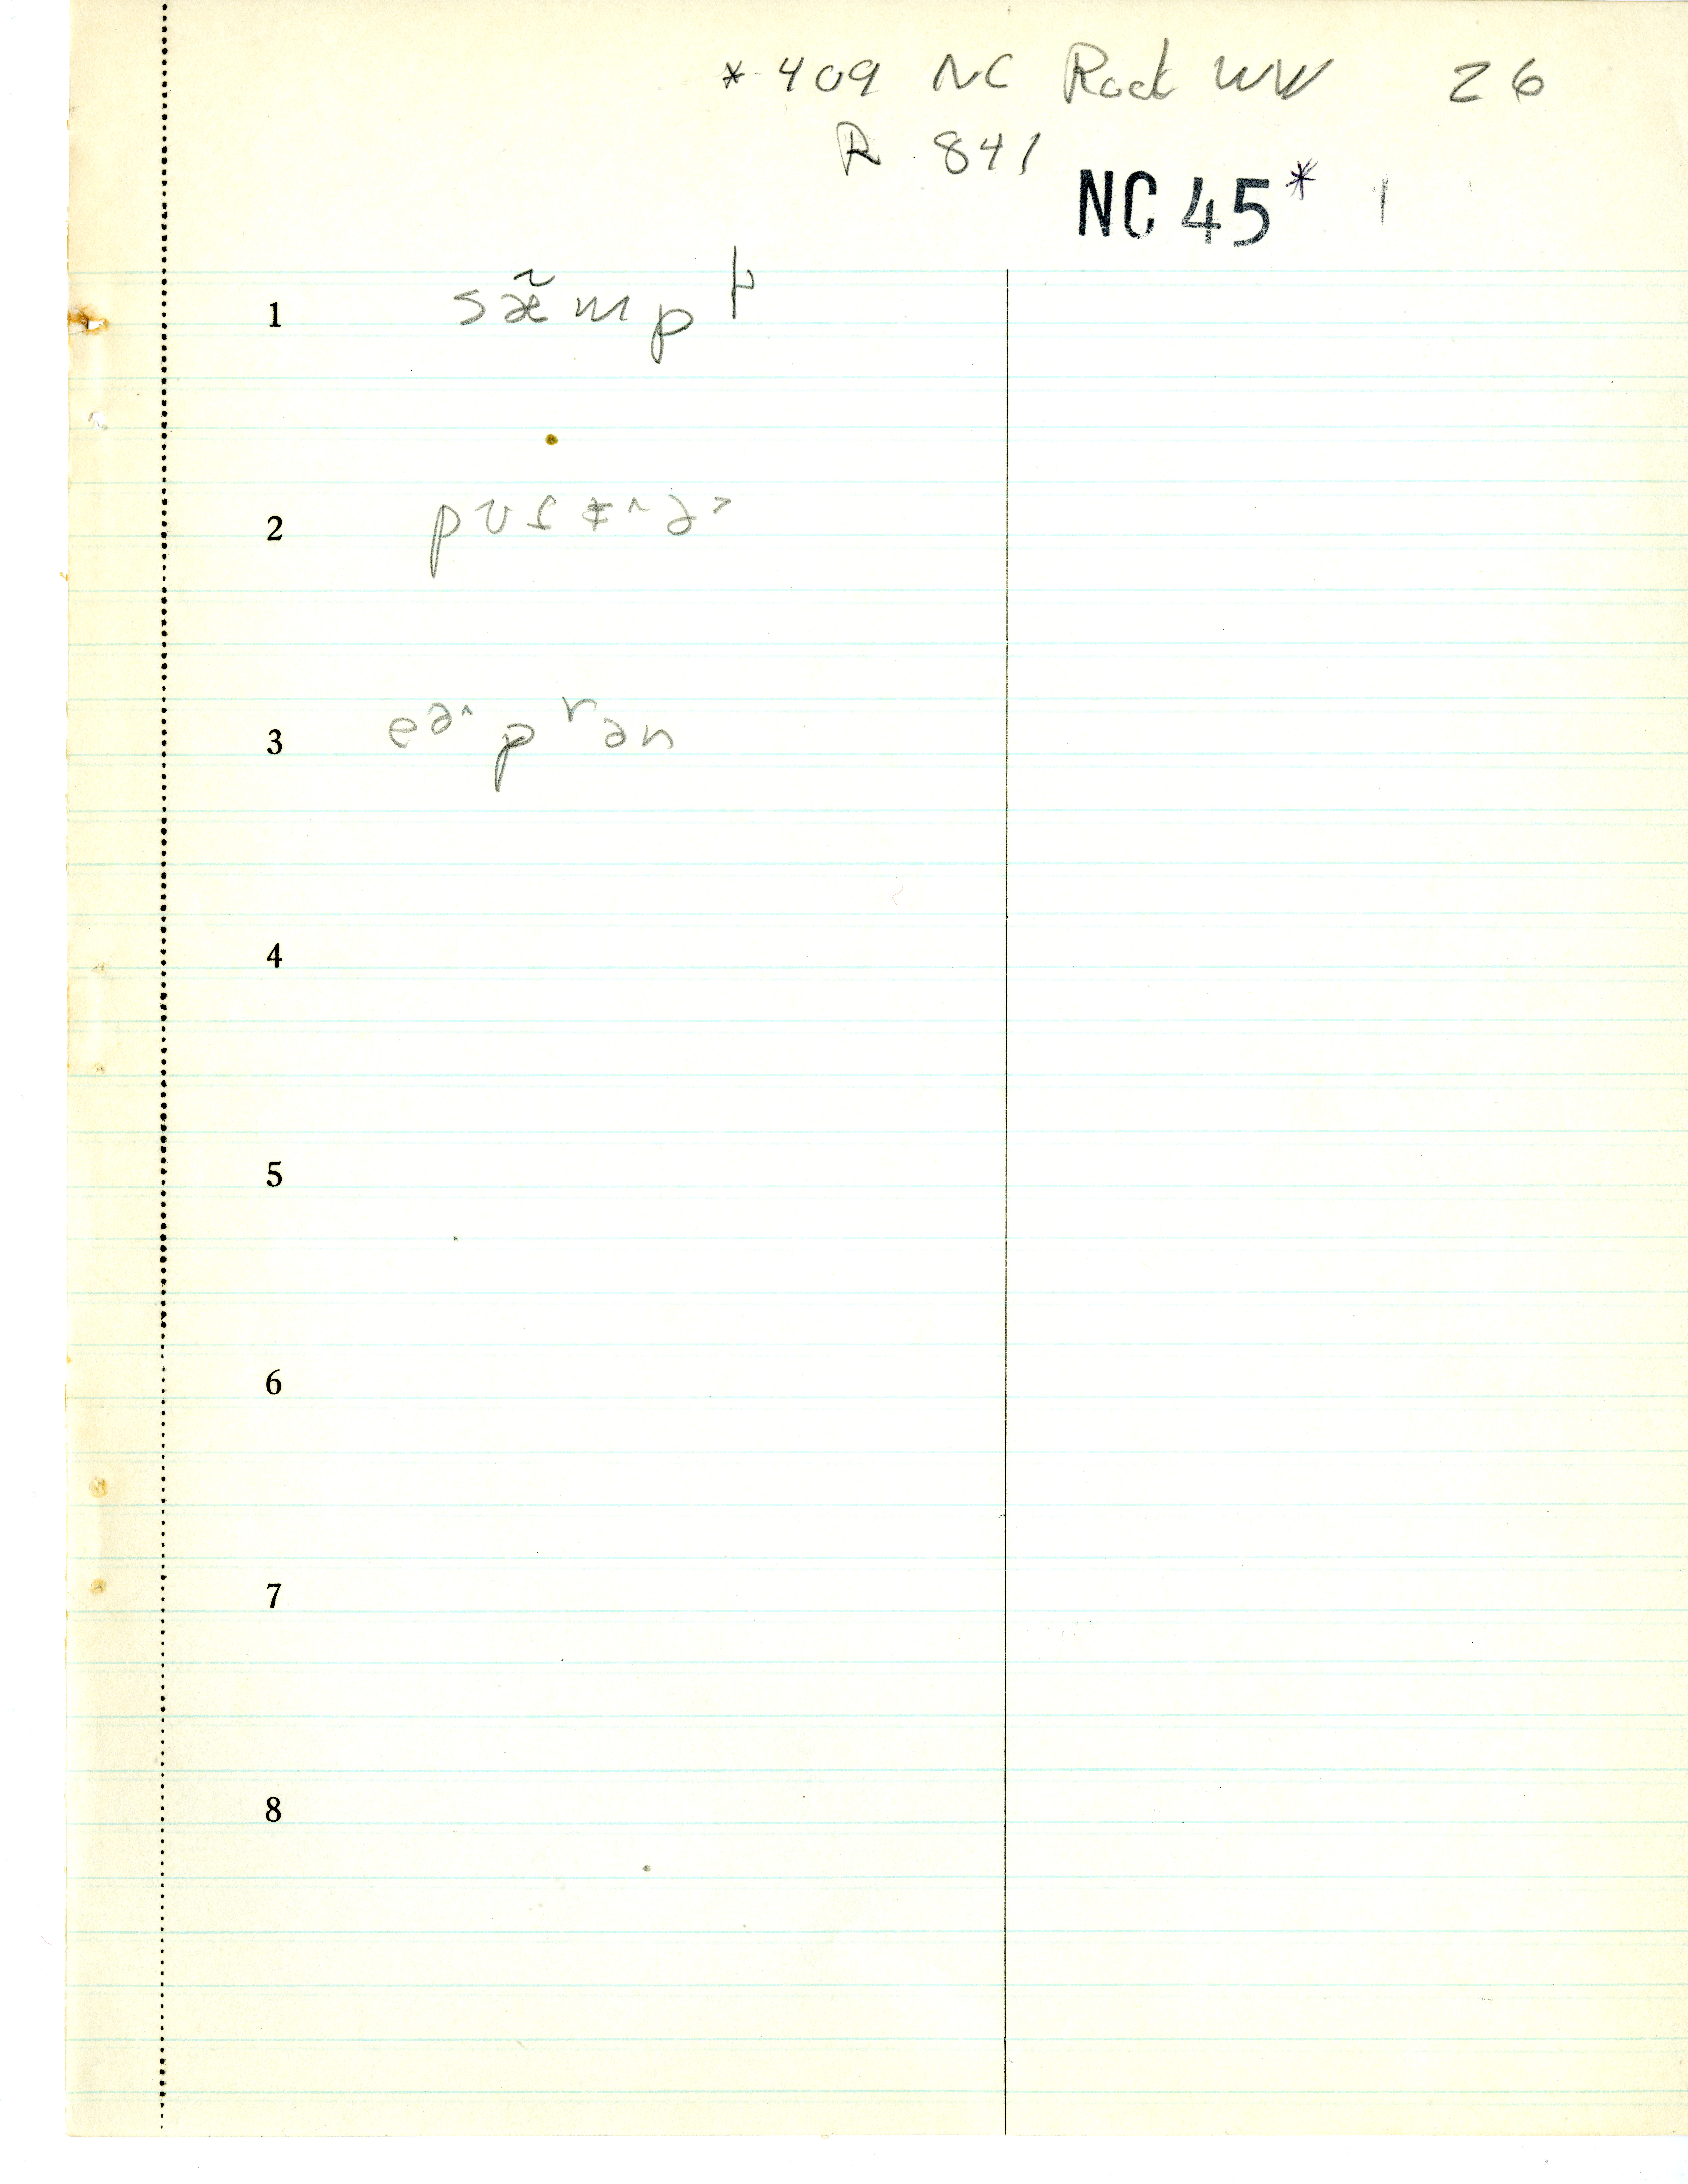 * 409 NC Rock WW 26
R 841
NC 45* 1
1 sæ̃mp
2
3 eə˄pʳən
4
5
6
7
8